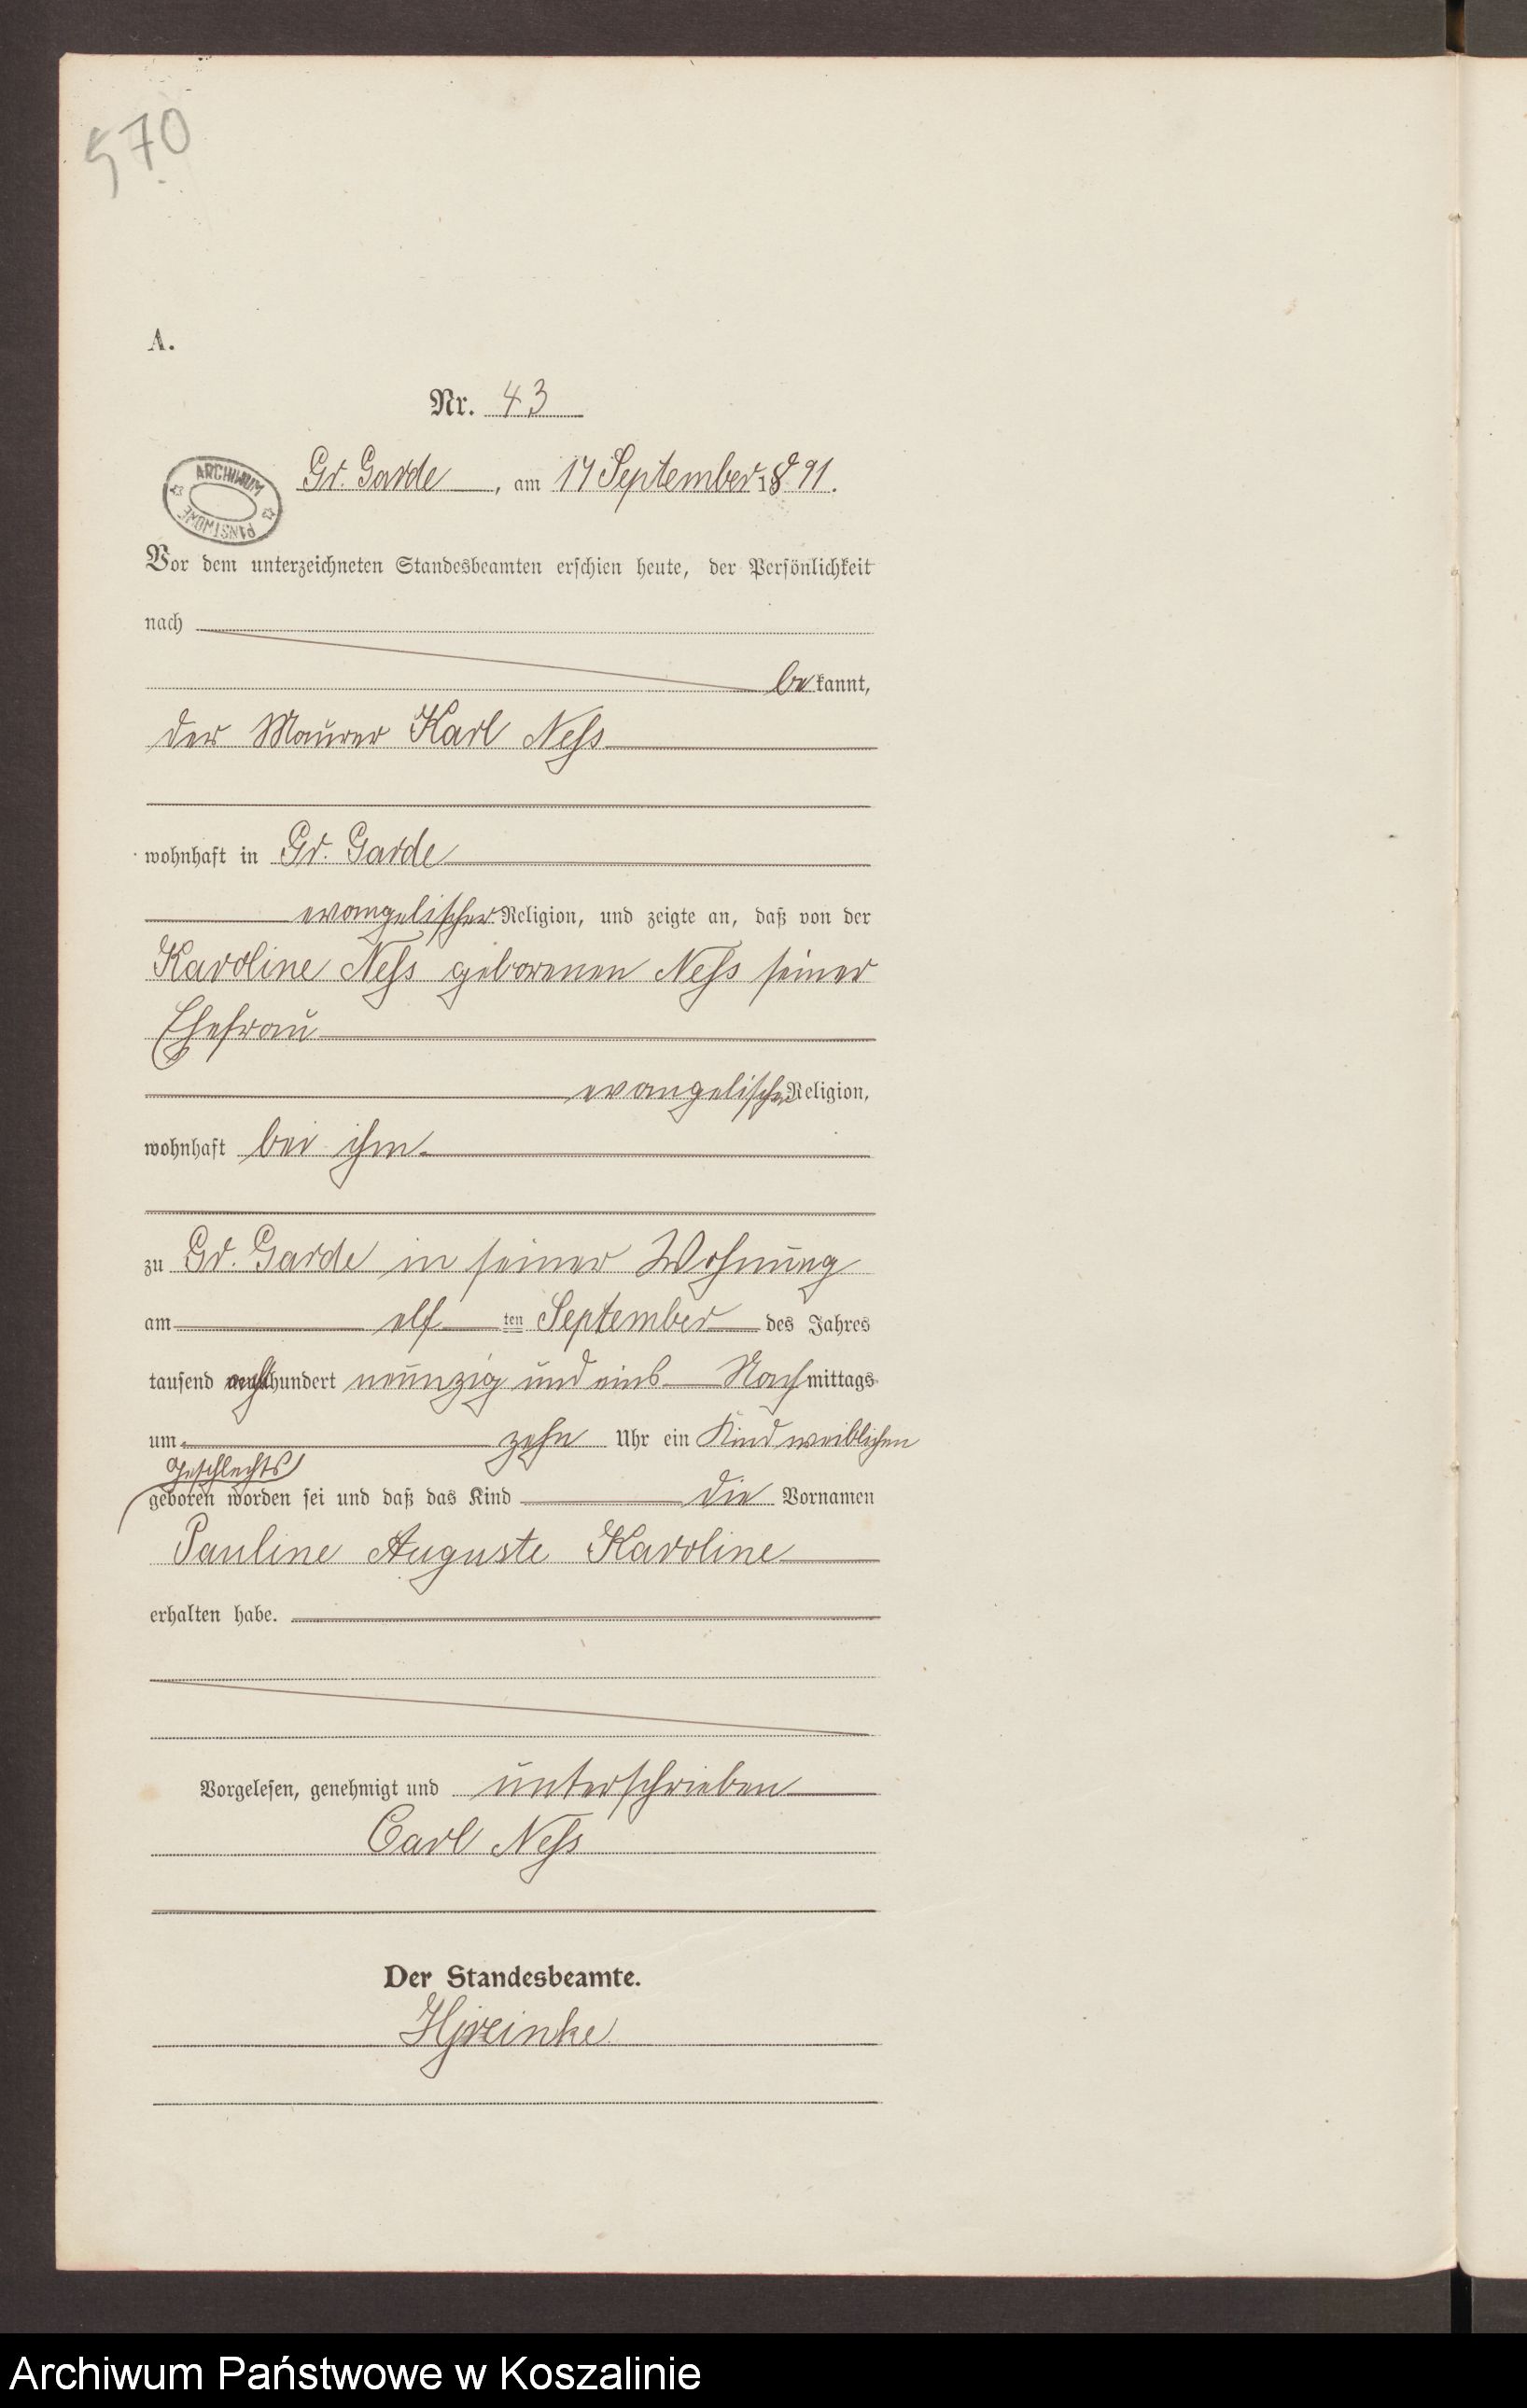 570
A.
Nr. 43
ARCHIWUM PAŃSTWOWE
Gr. Garde, am 17 September 1891.
Vor dem unterzeichneten Standesbeamten erschien heute, der Persönlichkeit
nach
bekannt,
der Maurer Karl Neß
wohnhaft in Gr. Garde
evangelischer Religion, und zeigte an, daß von der
Karoline Neß geborenen Neß seiner
Ehefrau
evangelischer Religion,
wohnhaft bei ihm
zu Gr. Garde in seiner Wohnung
am elf ten September des Jahres
tausend achthundert neunzig und eins Nachmittags
um zehn Uhr ein Kind weiblichen
Geschlechts
geboren worden sei und daß das Kind die Vornamen
Pauline Auguste Karoline
erhalten habe.
Vorgelesen, genehmigt und unterschrieben
Carl Neß
Der Standesbeamte.
Archiwum Państwowe w Koszalinie